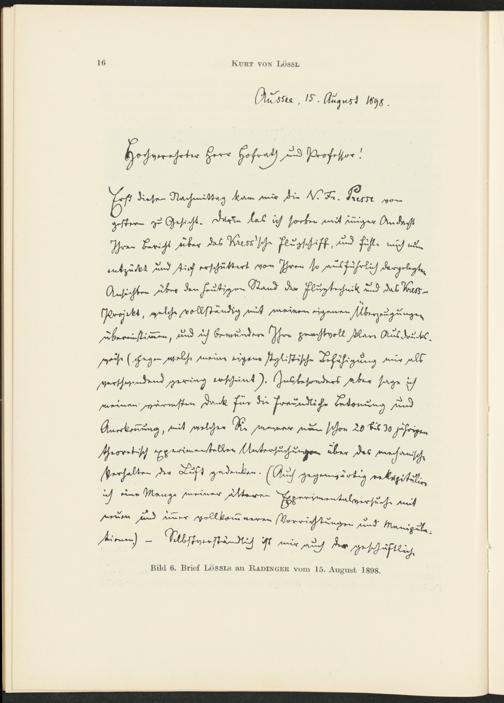 16
KURT VON LÖSSL
Aussee, 15. August 1898.
Hochverehrter Herr Hofrath und Professor!
Erst diesen Nachmittag kam mir die N. Fr. Presse von
gestern zu Gesicht. Darin las ich soeben mit inniger Andacht
Ihren Bericht über das Kress'sche Flugschiff, und fühle mich nun
entzückt und tief erschüttert von Ihren so ausführlich dargelegten
Ansichten über den heutigen Stand der Flugtechnik und das Kress-
Projekt, welche vollständig mit meinen eigenen Überzeugungen
übereinstimmen, und ich bewundere Ihre prachtvoll klare Ausdrucks-
weise (gegen welche meine eigene stylistische Befähigung mir als
verschwindend gering erscheint). Insbesondere aber sage ich
meinen wärmsten Dank für die freundliche Betonung und
Anerkennung, mit welcher Sie meiner nun schon 20 bis 30 jährigen
theoretisch experimentellen Untersuchungen über das mechanische
Verhalten der Luft gedenken. (Auch gegenwärtig rekapitulire
ich eine Menge meiner älteren Experimentalversuche mit
neuen und immer vollkommeneren Vorrichtungen und Manipula-
tionen) – Selbstverständlich ist mir auch der geschäftliche
Bild 6. Brief LÖSSLS an RADINGER vom 15. August 1898.